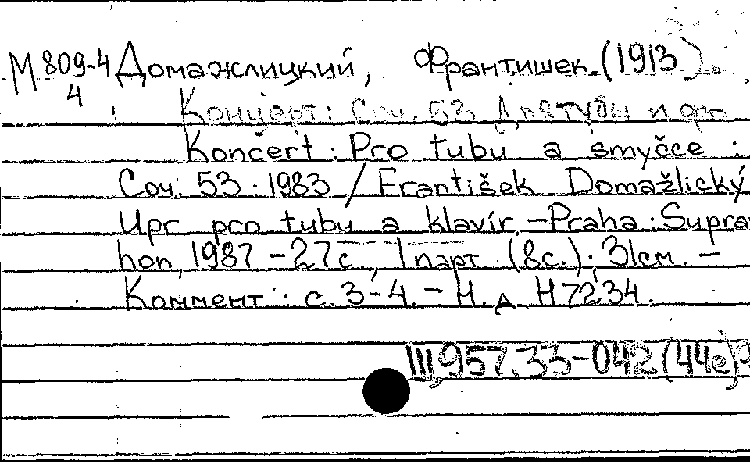 М 809-4 Домажлицкий, Франтишек (1913).
4
Концерт: Соч. 53 Для тубы и ф-
Koncert: Pro tubu a smyčce:
Соч. 53. 1983 / František Domažlický
Upr pro tubu a klavír. – Praha: Supra
hon, 1987 – 27с, 1 парт. (8с.); 31см. –
Коммент: с. 3-4. – Н. д. Н 7234.
Ш957.33-042(44е)